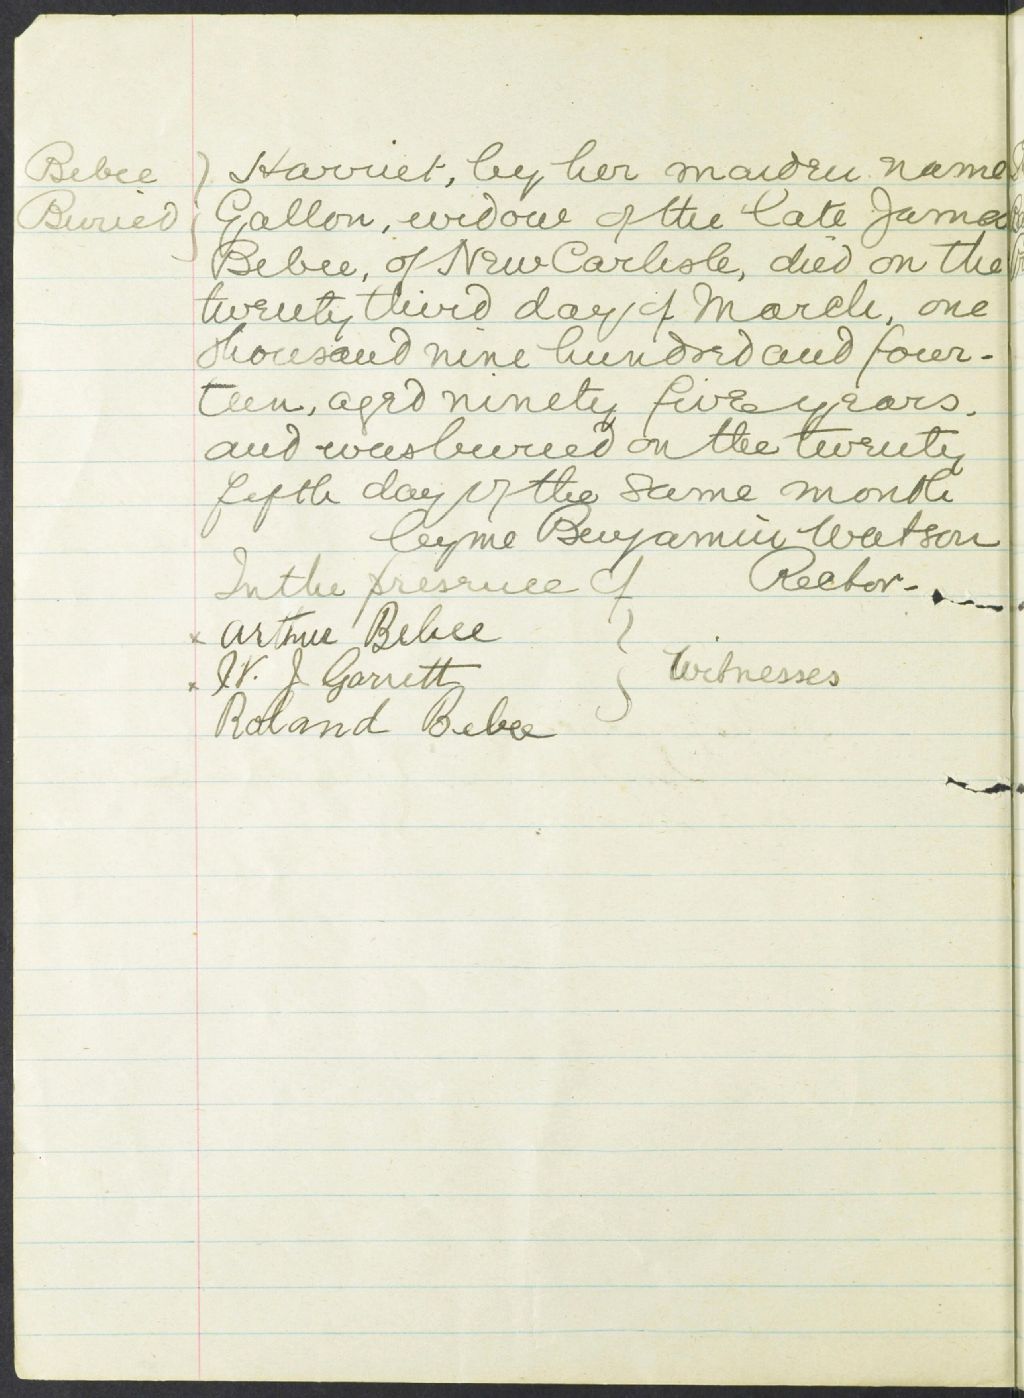 Bebee } Harriet, by her maiden name
Buried } Gallon, widow of the late James
Bebee, of New Carlisle, died on the
twenty third day of March, one
thousand nine hundred and four-
teen, aged ninety five years.
and was buried on the twenty
fifth day of the same month
by me Benjamin Watson
In the presence of Rector-
x Arthur Bebee
x W. J. Garrett } Witnesses
Roland Bebee